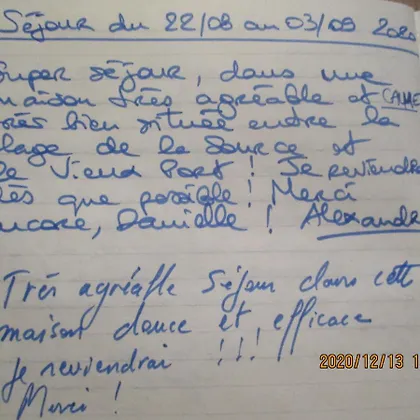 Séjour du 22/08 au 03/09 2020
Super séjour, dans une
maison très agréable et CALME
très bien située entre la
plage de la Source et
le Vieux Port ! Je reviendrai
dès que possible ! Merci
encore, Danielle ! Alexandre
Très agréable Séjour dans cette
maison douce et efficace
je reviendrai !!!
Merci !
2020/12/13 1